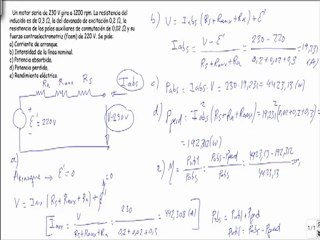 Un motor serie de 230 V gira a 1200 rpm. La resistencia del
inducido es de 0,3 Ω, la del devanado de excitación 0,2 Ω, la
resistencia de los polos auxiliares de conmutación de 0,02 Ω y su
fuerza contraelectromotriz (fcem) de 220 V. Se pide:
a) Corriente de arranque.
b) Intensidad de la línea nominal.
c) Potencia absorbida.
d) Potencia perdida.
e) Rendimiento eléctrico.
Ri Raux Rs
Iabs
E'=220V
V=230V
a)
Arranque → E'=0
V = Iarr (Rs+Raux+Ra) + E'
=0
Iarr = V / (Rs+Raux+Ra) = 230 / (0,2+0,02+0,3) = 442,308 (A)
b) V = Iabs (Rs+Raux+Ra) + E'
Iabs = (V-E') / (Rs+Raux+Ra) = (230-220) / (0,2+0,02+0,3) = 19,231 (A)
c) Pabs = Iabs·V = 230·19,231 = 4423,13 (W)
d) Pperd = Iabs² (Rs+Ra+Raux) = 19,231² (0,02+0,2+0,3)
= 192,310 (W)
e) η = Putil / Pabs = (Pabs-Pperd) / Pabs = (4423,13-192,312) / 4423,13
Pabs = Putil + Pperd
Putil = Pabs - Pperd